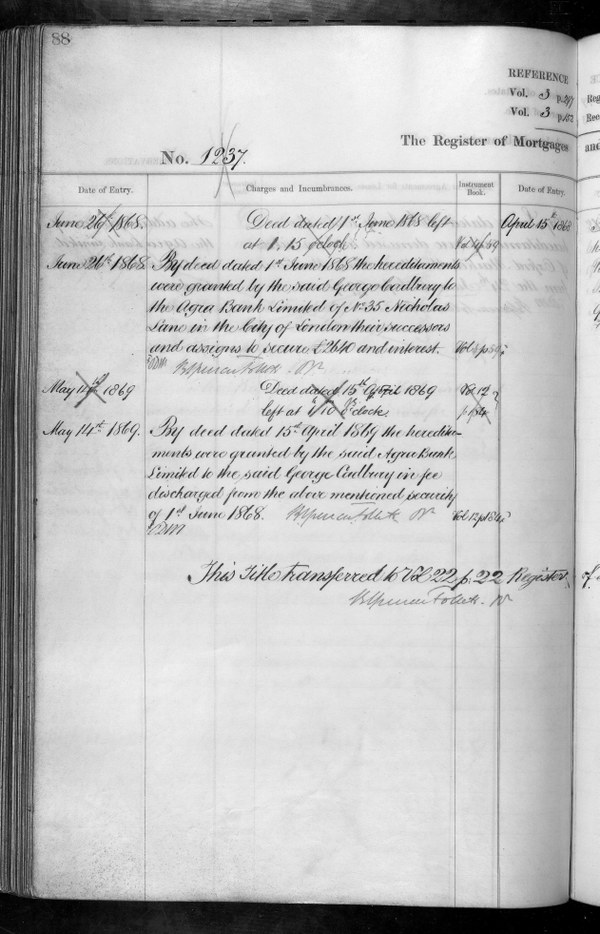 88
REFERENCE
Vol. 3 p.
Vol. 3 p.
The Register of Mortgages
and
No. 1237.
Date of Entry.
Charges and Incumbrances.
Instrument Book.
Date of Entry.
June 26th 1868. Deed dated 1st June 1868 left April 15th 1868
at 1. 15 o'clock
June 26th 1868 By deed dated 1st June 1868 the hereditaments
were granted by the said George Cadbury to
the Agra Bank Limited of No. 35 Nicholas
Lane in the City of London their successors
and assigns to secure £2640 and interest.
May 14th 1869 Deed dated 15th April 1869 Vol 12
left at o'clock
May 14th 1869. By deed dated 15th April 1869 the heredita-
ments were granted by the said Agra Bank
Limited to the said George Cadbury in fee
discharged from the above mentioned security
of 1st June 1868. Vol 12 p
This Title transferred to Vol 22 p. 22 Register of